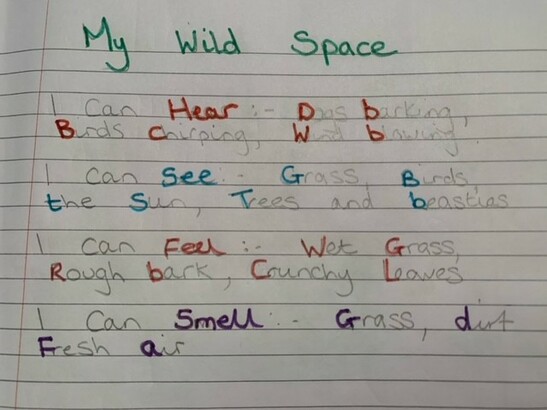 My Wild Space
I Can Hear :- Dogs barking,
Birds chirping, Wind blowing
I Can See :- Grass, Birds,
the Sun, Trees and beasties
I Can Feel :- Wet Grass,
Rough bark, Crunchy Leaves
I Can Smell :- Grass, dirt
Fresh air